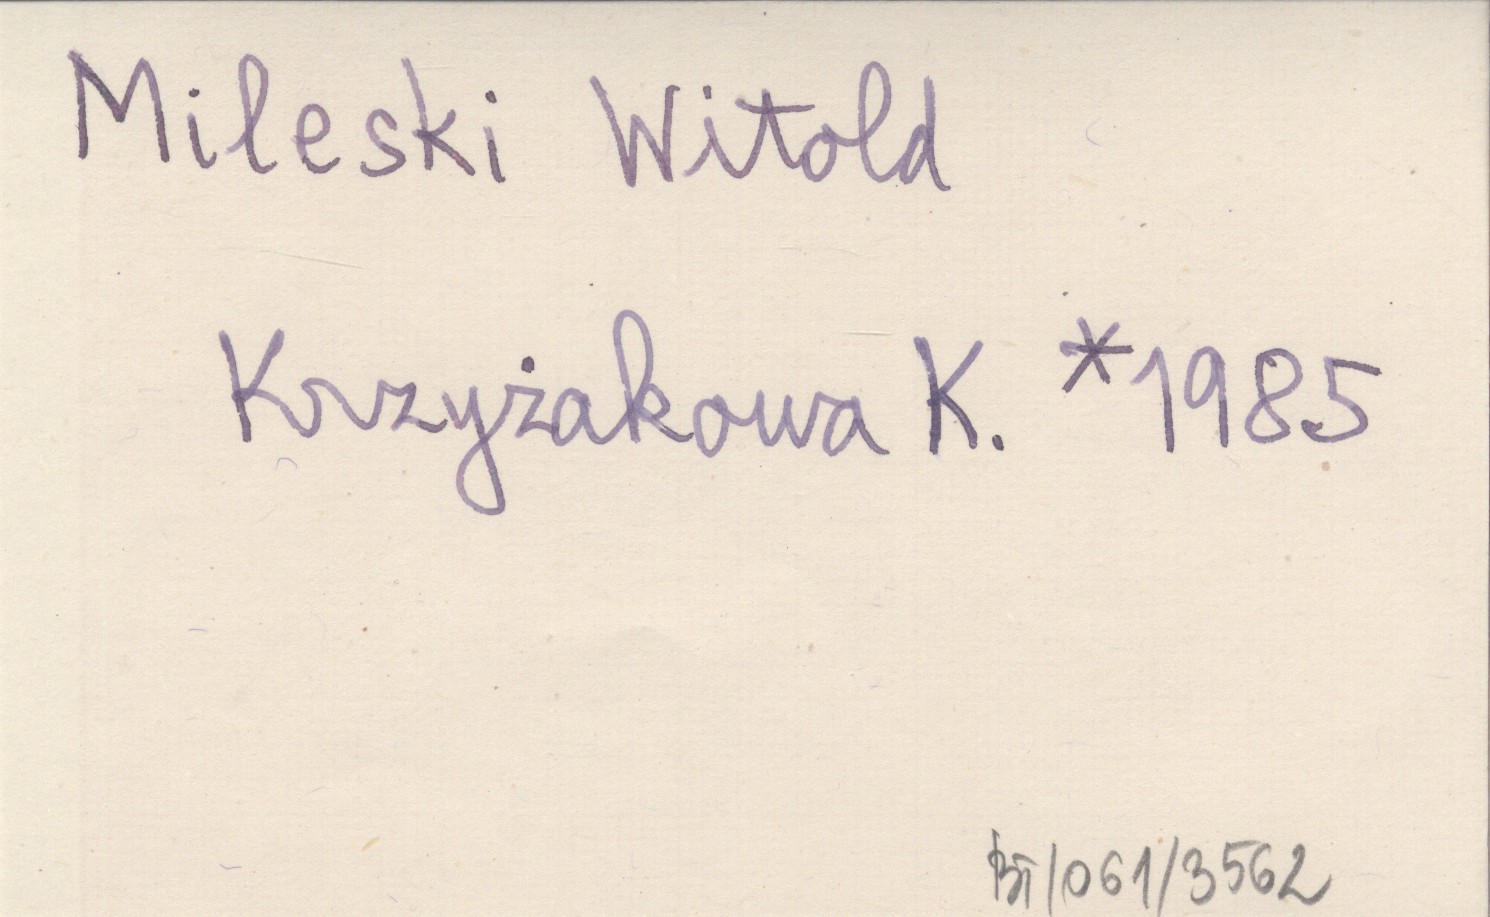 Mileski Witold
Krzyżakowa K. *1985
BT/061/3562